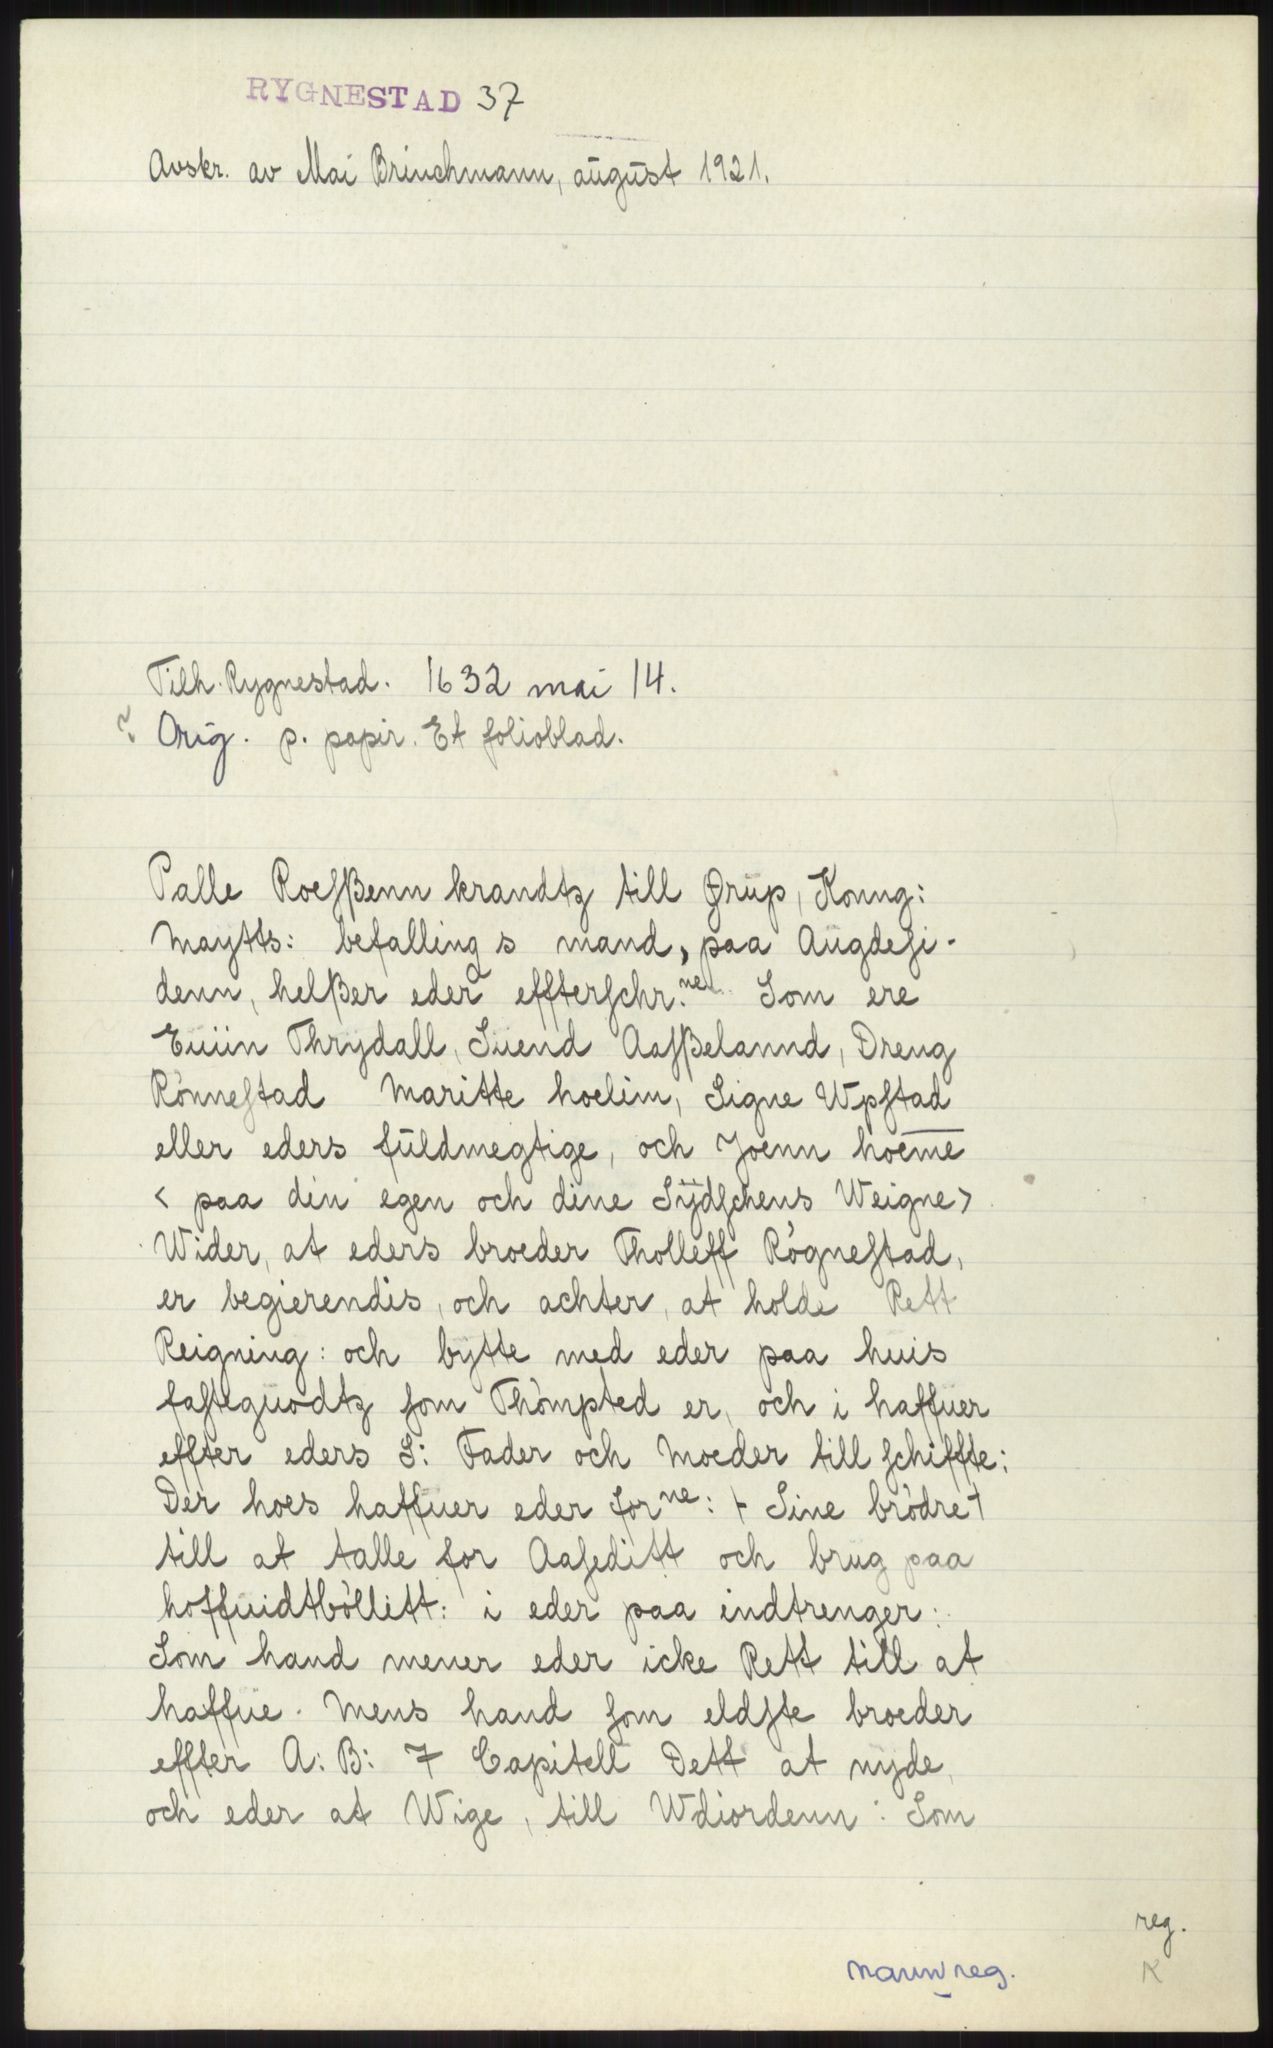 RYGNESTAD 37
Avskr. av Mai Brinchmann, august 1921.
Tilh. Rygnestad. 1632 mai 14.
? Orig. p. papir. Et folioblad.
Palle Roeſßenn krandtz till Ørup, Konng:
Maytts: befallings mand, paa Augdeſi-
denn, helßer eder effterſchr.ne Som ere
Euiin Thrydall, Suend Aaſßelannd, Dreng
Rönneſtad Maritte hoelim, Signe Wpſtad
eller eders fuldmegtige, och Joenn hoeme
< paa din egen och dine Sÿdſchens Weigne>
Wider, at eders broeder Tholleff Rögneſtad,
er begierendis, och achter, at holde Rett
Reigning: och bytte med eder paa huis
faſteguodtz ſom Thömpted er, och i haffuer
effter eders S: Fader och Moeder till ſchiffte:
Der hoes haffuer eder forne: + Sine brödre +
till at talle for Aaſeditt och brug paa
hoffuidtböllitt: i eder paa indtrenger:
Som hand mener eder icke Rett till at
haffue. Mens hand ſom eldſte broeder
effter A: B: 7 Capitell Dett at nyde,
och eder at Wige, till Wdiordenn: Som
reg.
navnreg.
K